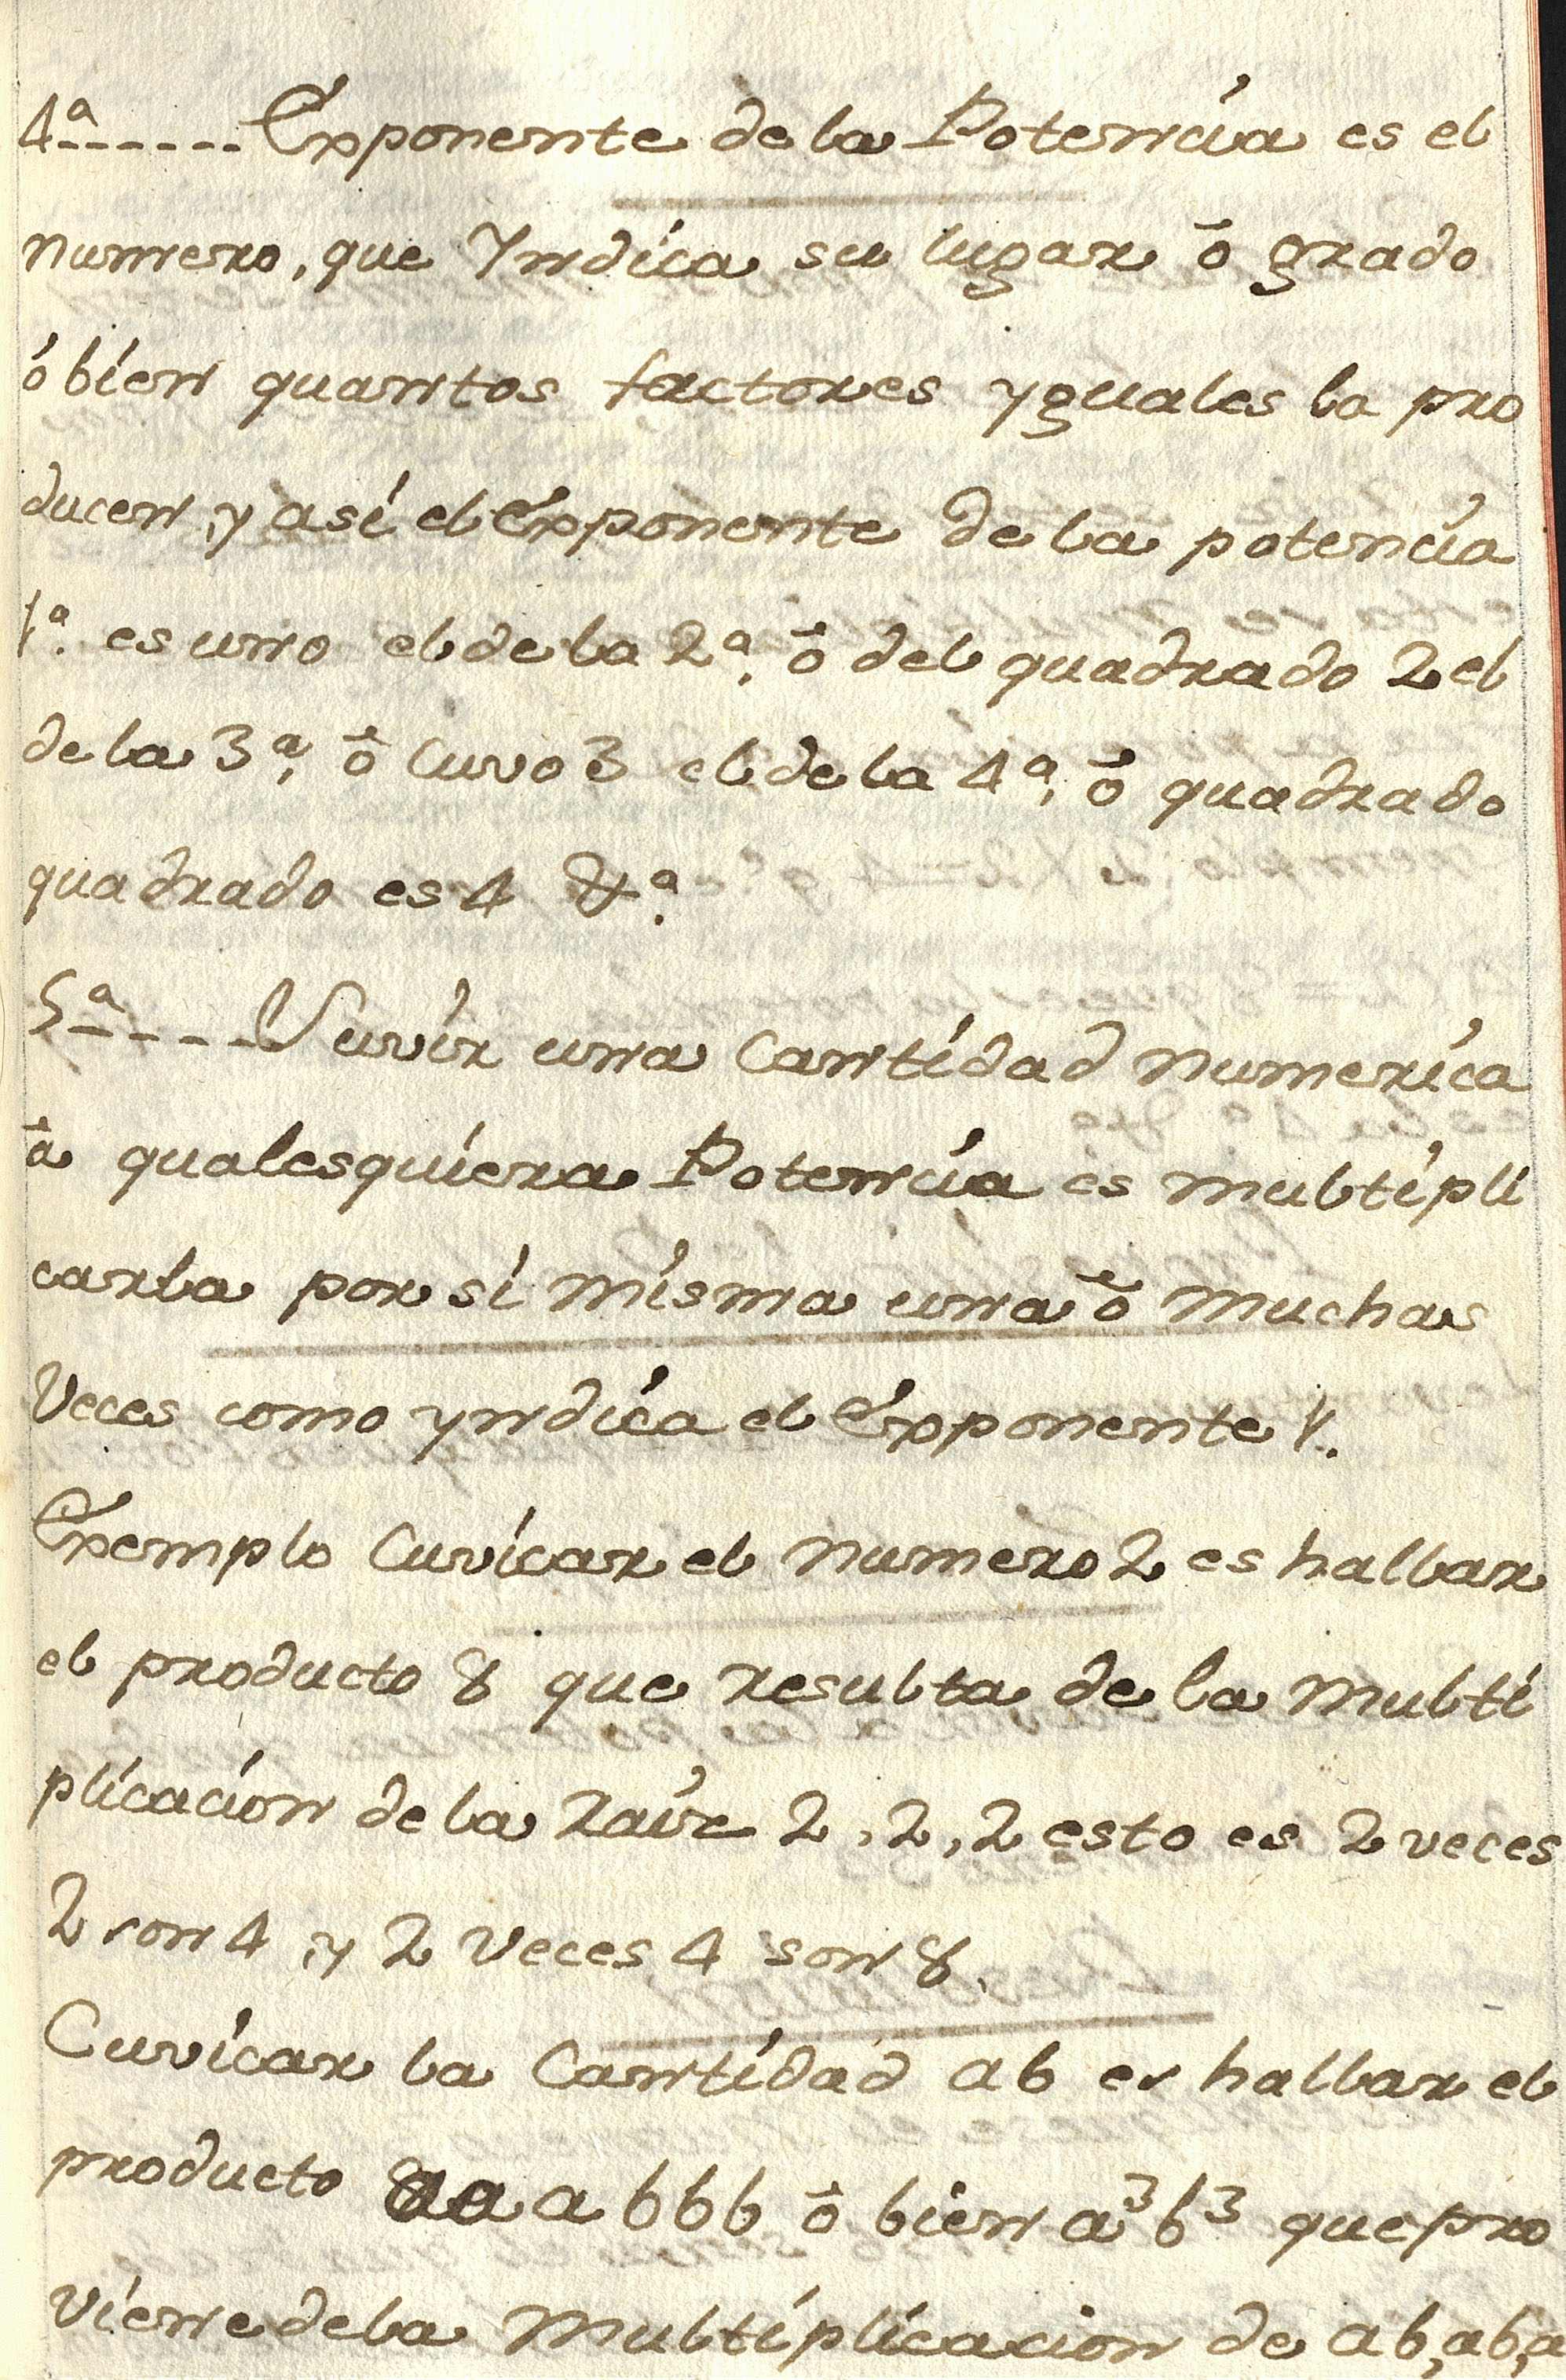 4ª------Exponente de la Potencia es el
numero, que Yndica su lugar ó grado
ó bien quantos factores yguales la pro
ducen, y asi el Exponente de la potencia
1ª. es uno el de la 2ª, ó del quadrado 2 el
de la 3ª, ó Cuvo 3 el de la 4ª, ó quadrado
quadrado es 4 &ª.
5ª-----Suvir una Cantidad numerica
á qualesquiera Potencia es multipli
carla por si misma una ó muchas
Veces como yndica el Exponente 1.
Exemplo Cuvicar el numero 2 es hallar
el producto 8 que resulta de la Multi
plicacion de la Raiz 2, 2, 2 esto es 2 veces
2 son 4, y 2 Veces 4 son 8.
Cuvicar la Cantidad ab es hallar el
producto aaabbb ó bien a³b³ que pro
viene de la Multiplicacion de ab, ab, a